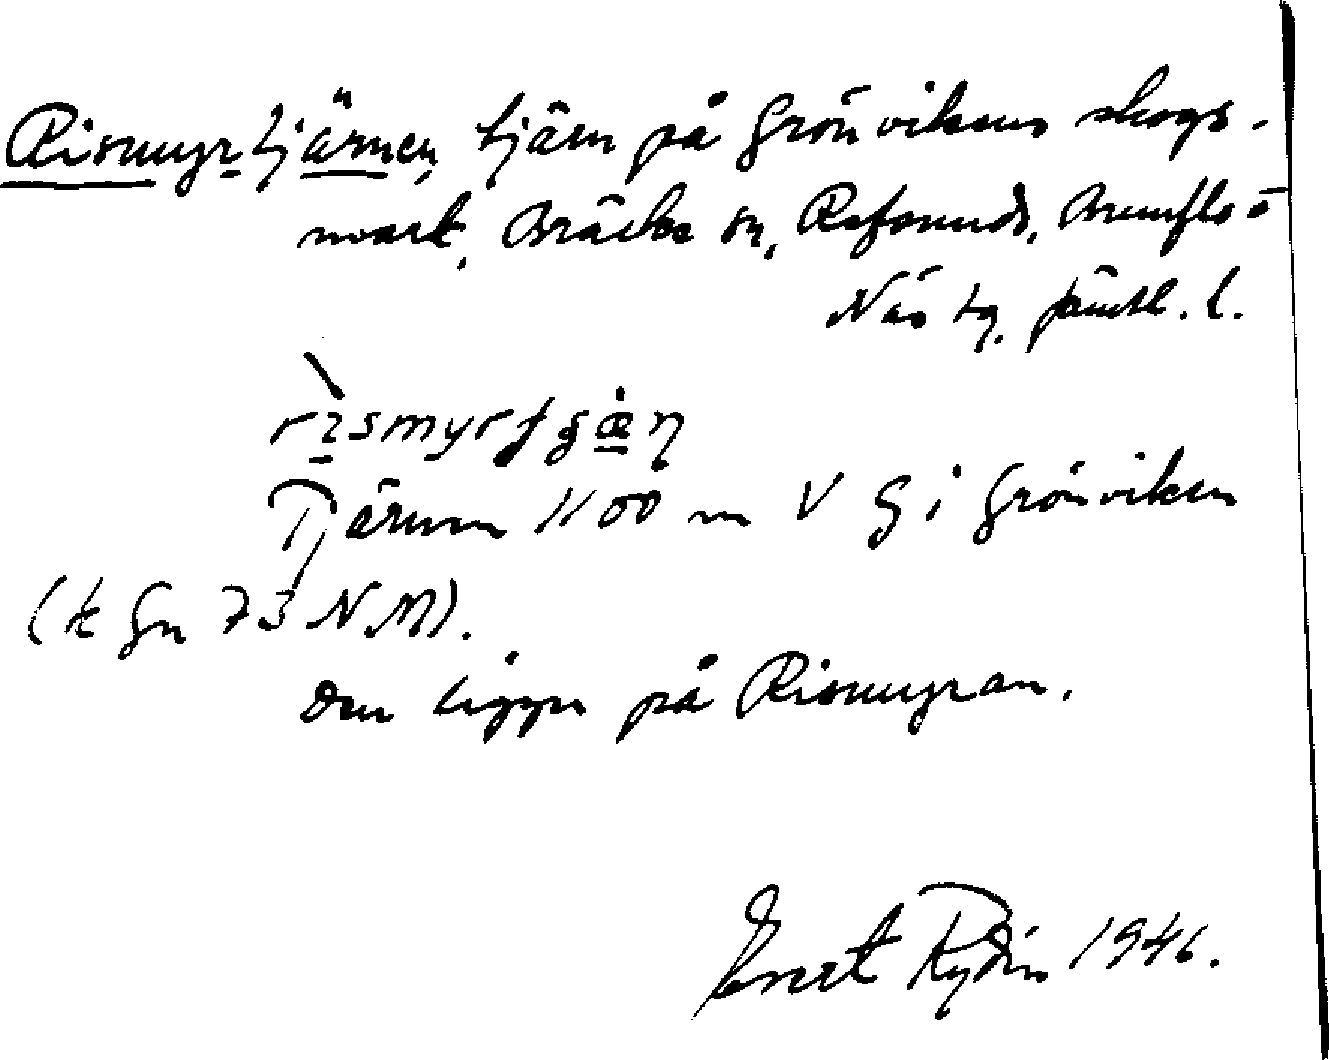 Rismyrtjärnen, tjärn på Grönvikens skogs-
mark, Bräcke sn, Refsunds, Brunflo o
Näs tg, Jämtl. l.
Tjärnen 1100 m V G i Grönviken
(k Gn 73 NM).
Den ligger på Rismyran.
Evert Rydin 1946.